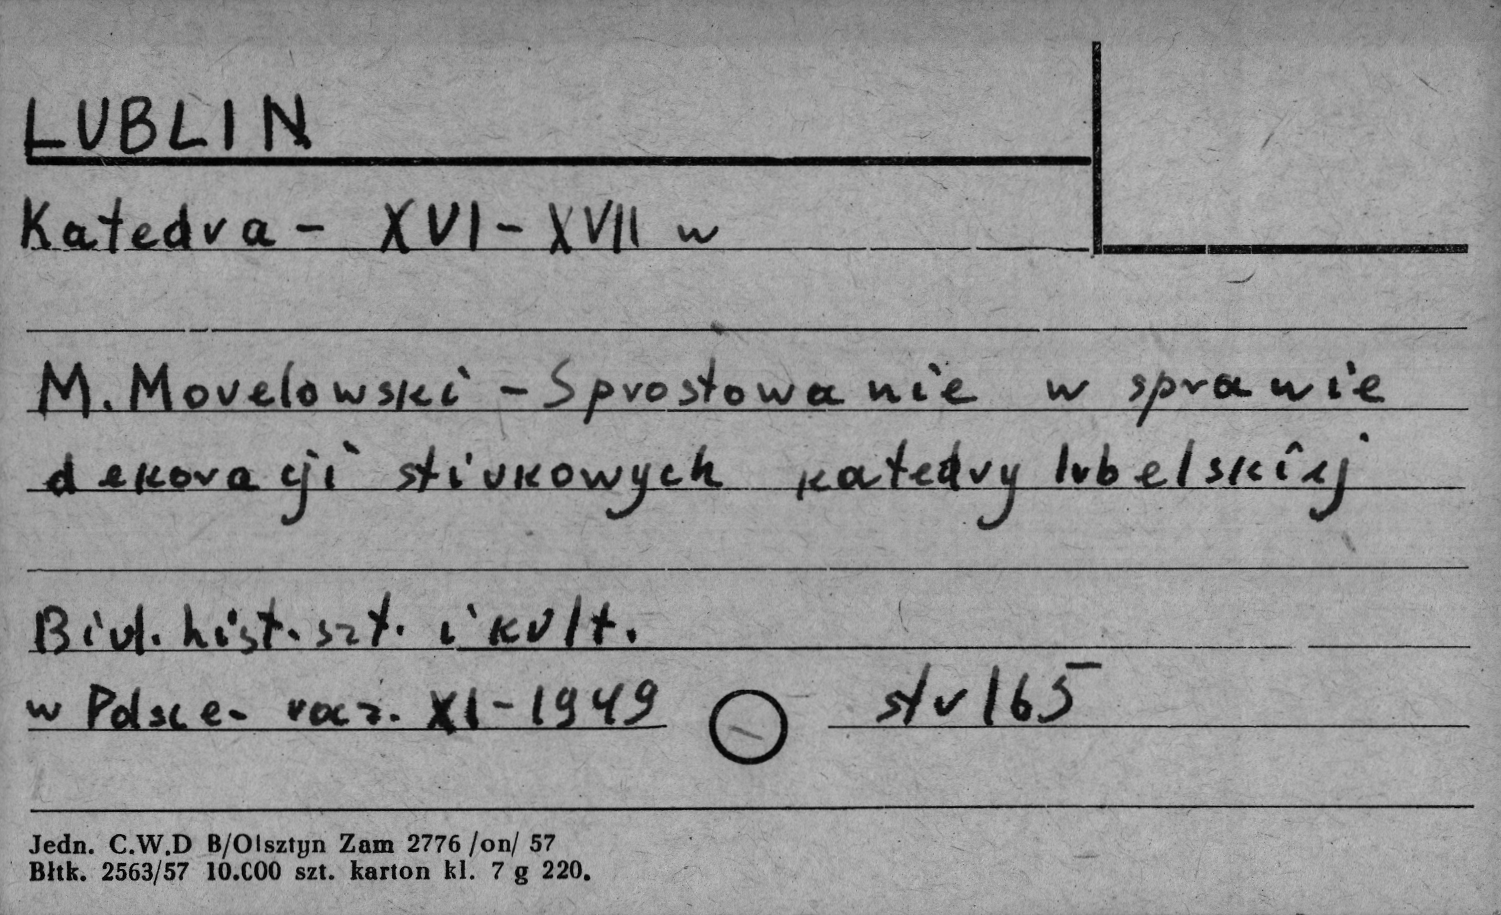 LUBLIN
Katedra - XVI - XVII w
M. Morelowski - Sprostowanie w sprawie
dekoracji stiukowych katedry lubelskiej
Biul. hist. szt. i kult.
w Polsce - rocz. XI - 1949 str 165
Jedn. C.W.D B/Olsztyn Zam 2776 /on/ 57
Błtk. 2563/57 10.000 szt. karton kl. 7 g 220.